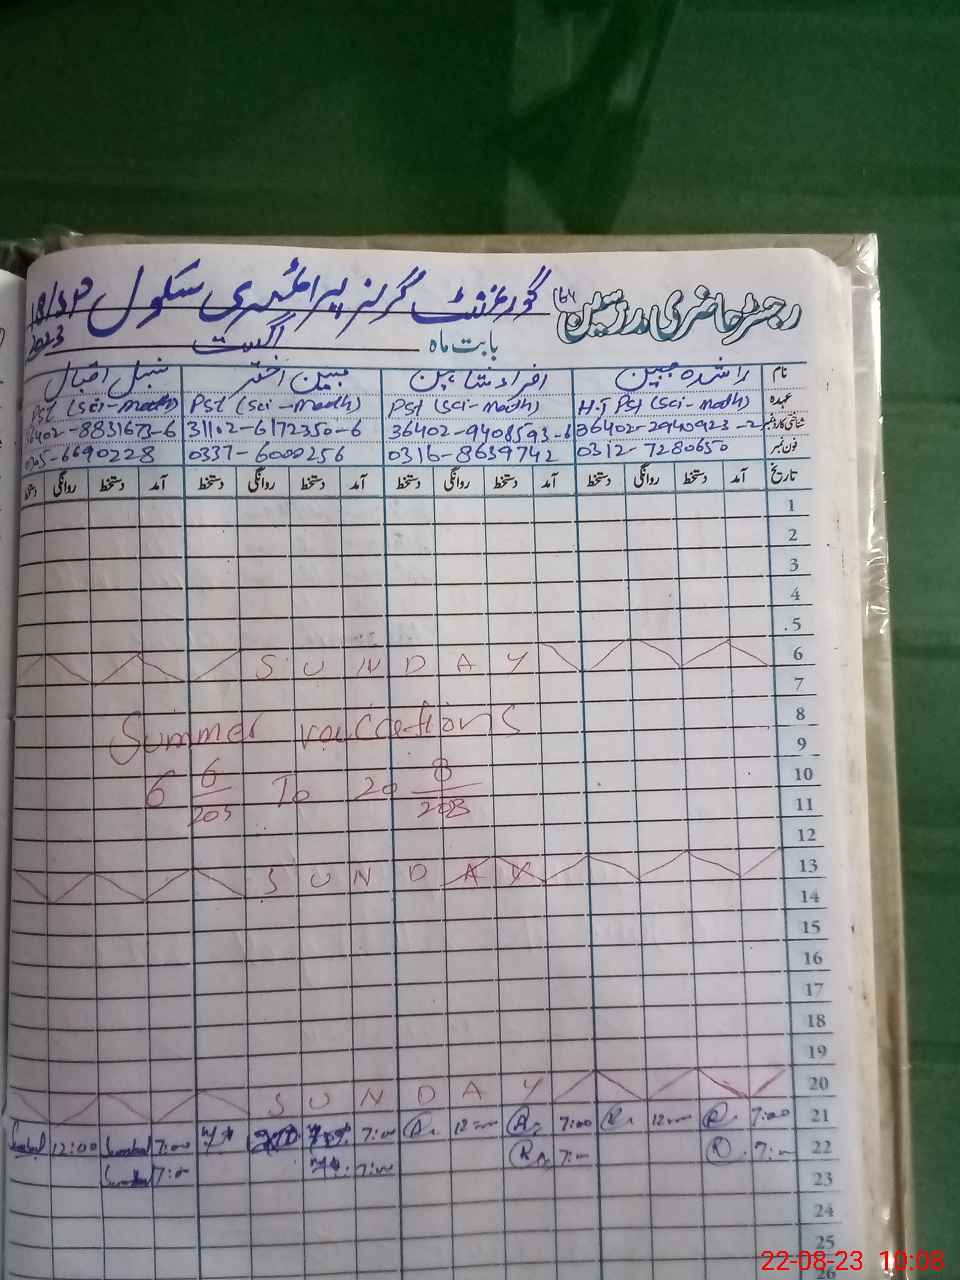 رجسٹر حاضری مدرسین گورنمنٹ گرلز پرائمری سکول
بابت ماہ اگست 2023
نام راشدہ جبین مبین اختر سنبل اقبال
عہدہ H.T PST (Sci-math) PST (Sci-math) PST (Sci-math) PST (Sci-math)
شناختی کارڈ نمبر 36402-9408593-6 31102-6172350-6 36402-8831673-6
فون نمبر 0312-7280650 0316-8639742 0337-6000256 6690228
تاریخ آمد دستخط روانگی دستخط آمد دستخط روانگی دستخط آمد دستخط روانگی دستخط آمد دستخط روانگی
1
2
3
4
5
6 SUNDAY
7
8 Summer vaccations
9
10 6 6/203 To 20 8/203
11
12
13 SUNDAY
14
15
16
17
18
19
20 SUNDAY
21 7:00 12:00 7:00 12:00 7:00 7:00 Sumbal 12:00 Sumbal
22 7:00 7:00 7:00 7:00 Sumbal
23
24
25
26
22-08-23 10:08